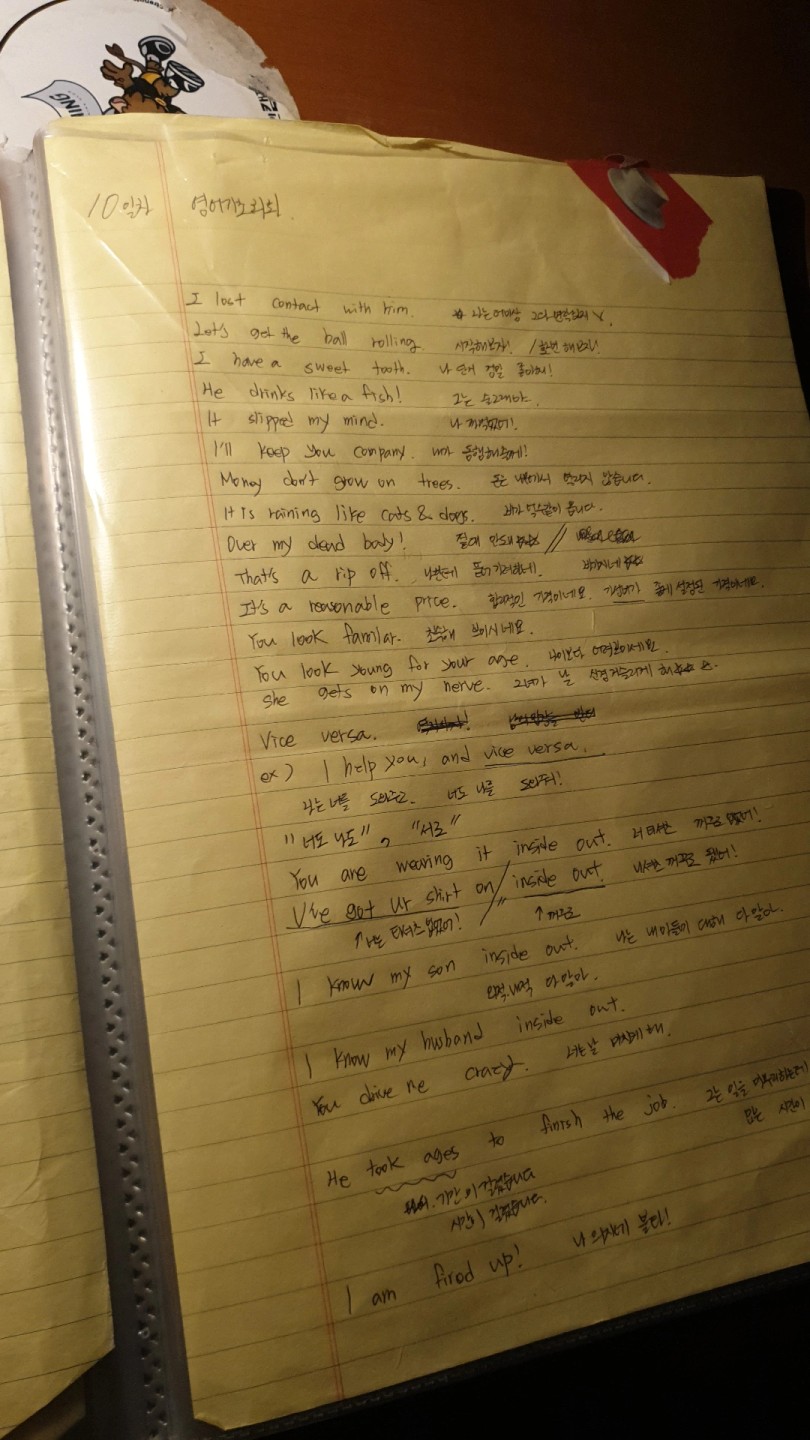 NING
10일차 영어기초회화
I lost contact with him. 나는 더이상 그와 연락안해
Let's get the ball rolling. 시작해보자! / 한번 해보자!
I have a sweet tooth. 나 단거 정말 좋아해!
He drinks like a fish! 그는 술고래야.
It slipped my mind. 나 까먹었어!
I'll keep you company. 내가 동행해줄게!
Money don't grow on trees. 돈은 나무에서 자라지 않습니다.
It is raining like cats & dogs. 비가 억수같이 옵니다.
Over my dead body! 절대 안돼 //
That's a rip off. 바가지네
It's a reasonable price. 합리적인 가격이네요. 설정된 가격이네요.
You look familar. 친숙해 보이시네요.
You look young for your age. 나이보다 어려보이세요.
She gets on my nerve. 그녀가 날 신경거슬리게 해
Vice versa.
ex) I help you, and vice versa.
나는 너를 도와주고. 너도 나를 도와줘!
"너도 나도", "서로"
You are wearing it inside out. 너 티셔츠 거꾸로 입었어!
U've got Ur shirt on / inside out. 너셔츠 거꾸로 입었어!
↑ 너는 티셔츠 입었어! ↑ 거꾸로
I know my son inside out. 나는 내 아들에 대해 다 알아.
외적.내적 다 알아.
I know my husband inside out.
You drive me crazy. 너는 날 미치게 해.
He took ages to finish the job. 그는 일을 마무리하는데
많은 시간이
기간이 길었습니다
시간이 길었습니다.
I am fired up! 나 의지에 불타!